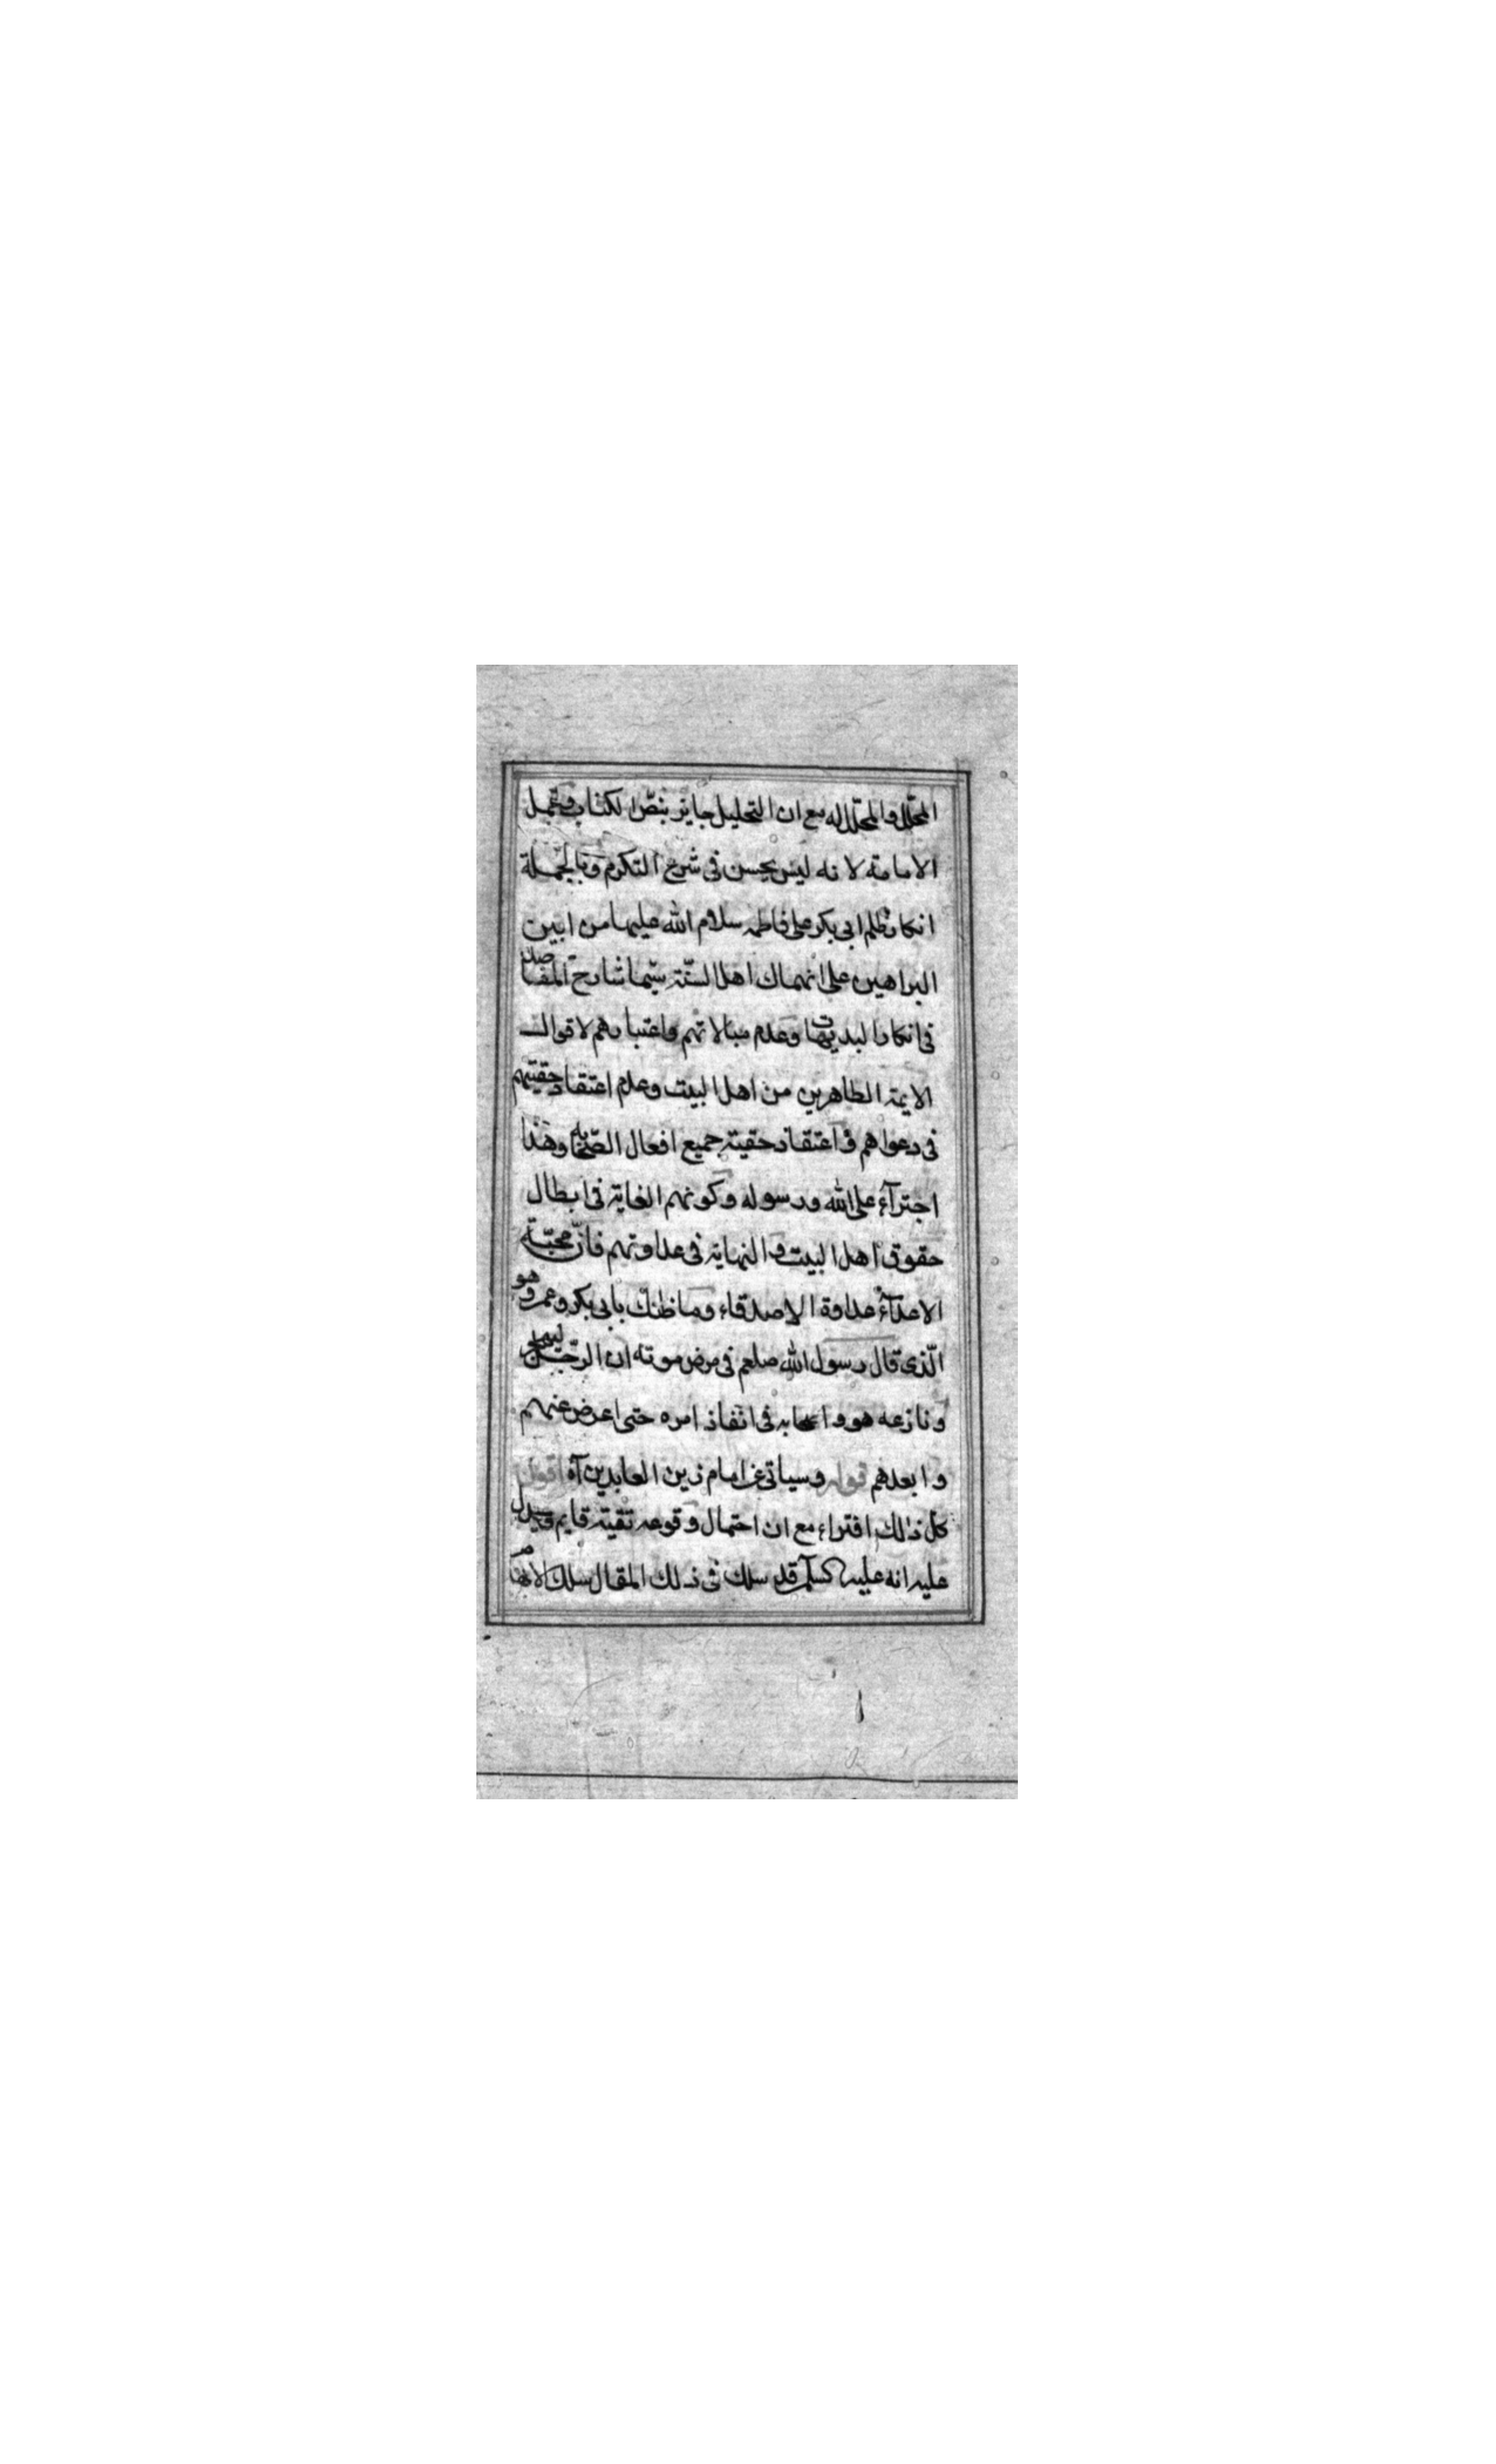 المحلّل والمحلّل له مع ان التحليل جايز بنصّ الكتاب وعمل
الامامة لانه ليس بحسن فى شرع التكرم وبالجملة
انكار ظلم ابى بكر على فاطمه سلام الله عليها من ابين
البراهين على انهماك اهل السنّة سيّما شارح المقاصد
فى انكار البديهيات وعدم مبالاتهم واعتبارهم لاقوال
الايمة الطاهرين من اهل البيت وعدم اعتقاد حقيتهم
فى دعواهم واعتقاد حقية جميع افعال الصّحابه وهذا
اجترآء على الله ورسوله وكونهم الغاية فى ابطال
حقوق اهل البيت والنهاية فى عداوتهم فانّ محبّة
الاعدآء عداوة الاصدقاء وما ظنك بابى بكر وعمر وهو
الّذى قال رسول الله صلعم فى مرض موته ان الرّجل ليهجر
ونازعه هو واصحابه فى انفاذ امره حتى اعرض عنهم
وابعدهم قوله وسياتى عن امام زين العابدين آه اقول
كل ذلك افتراء مع ان احتمال وقوعه تقية قايم ويدل
عليه انه عليه السلم قد سلك فى ذلك المقال سلك